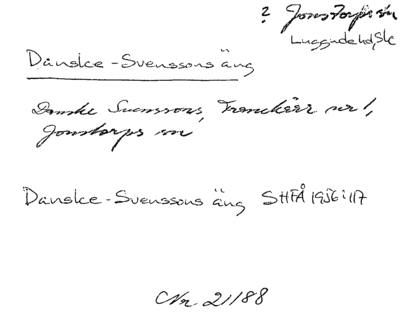 ? Jonstorps sn
Luggude hd, Sk
Danske-Svenssons äng
Danske Svenssons, nr 1,
Jonstorps sn
Danske-Svenssons äng SHFÅ 1956:117
Nr. 21188